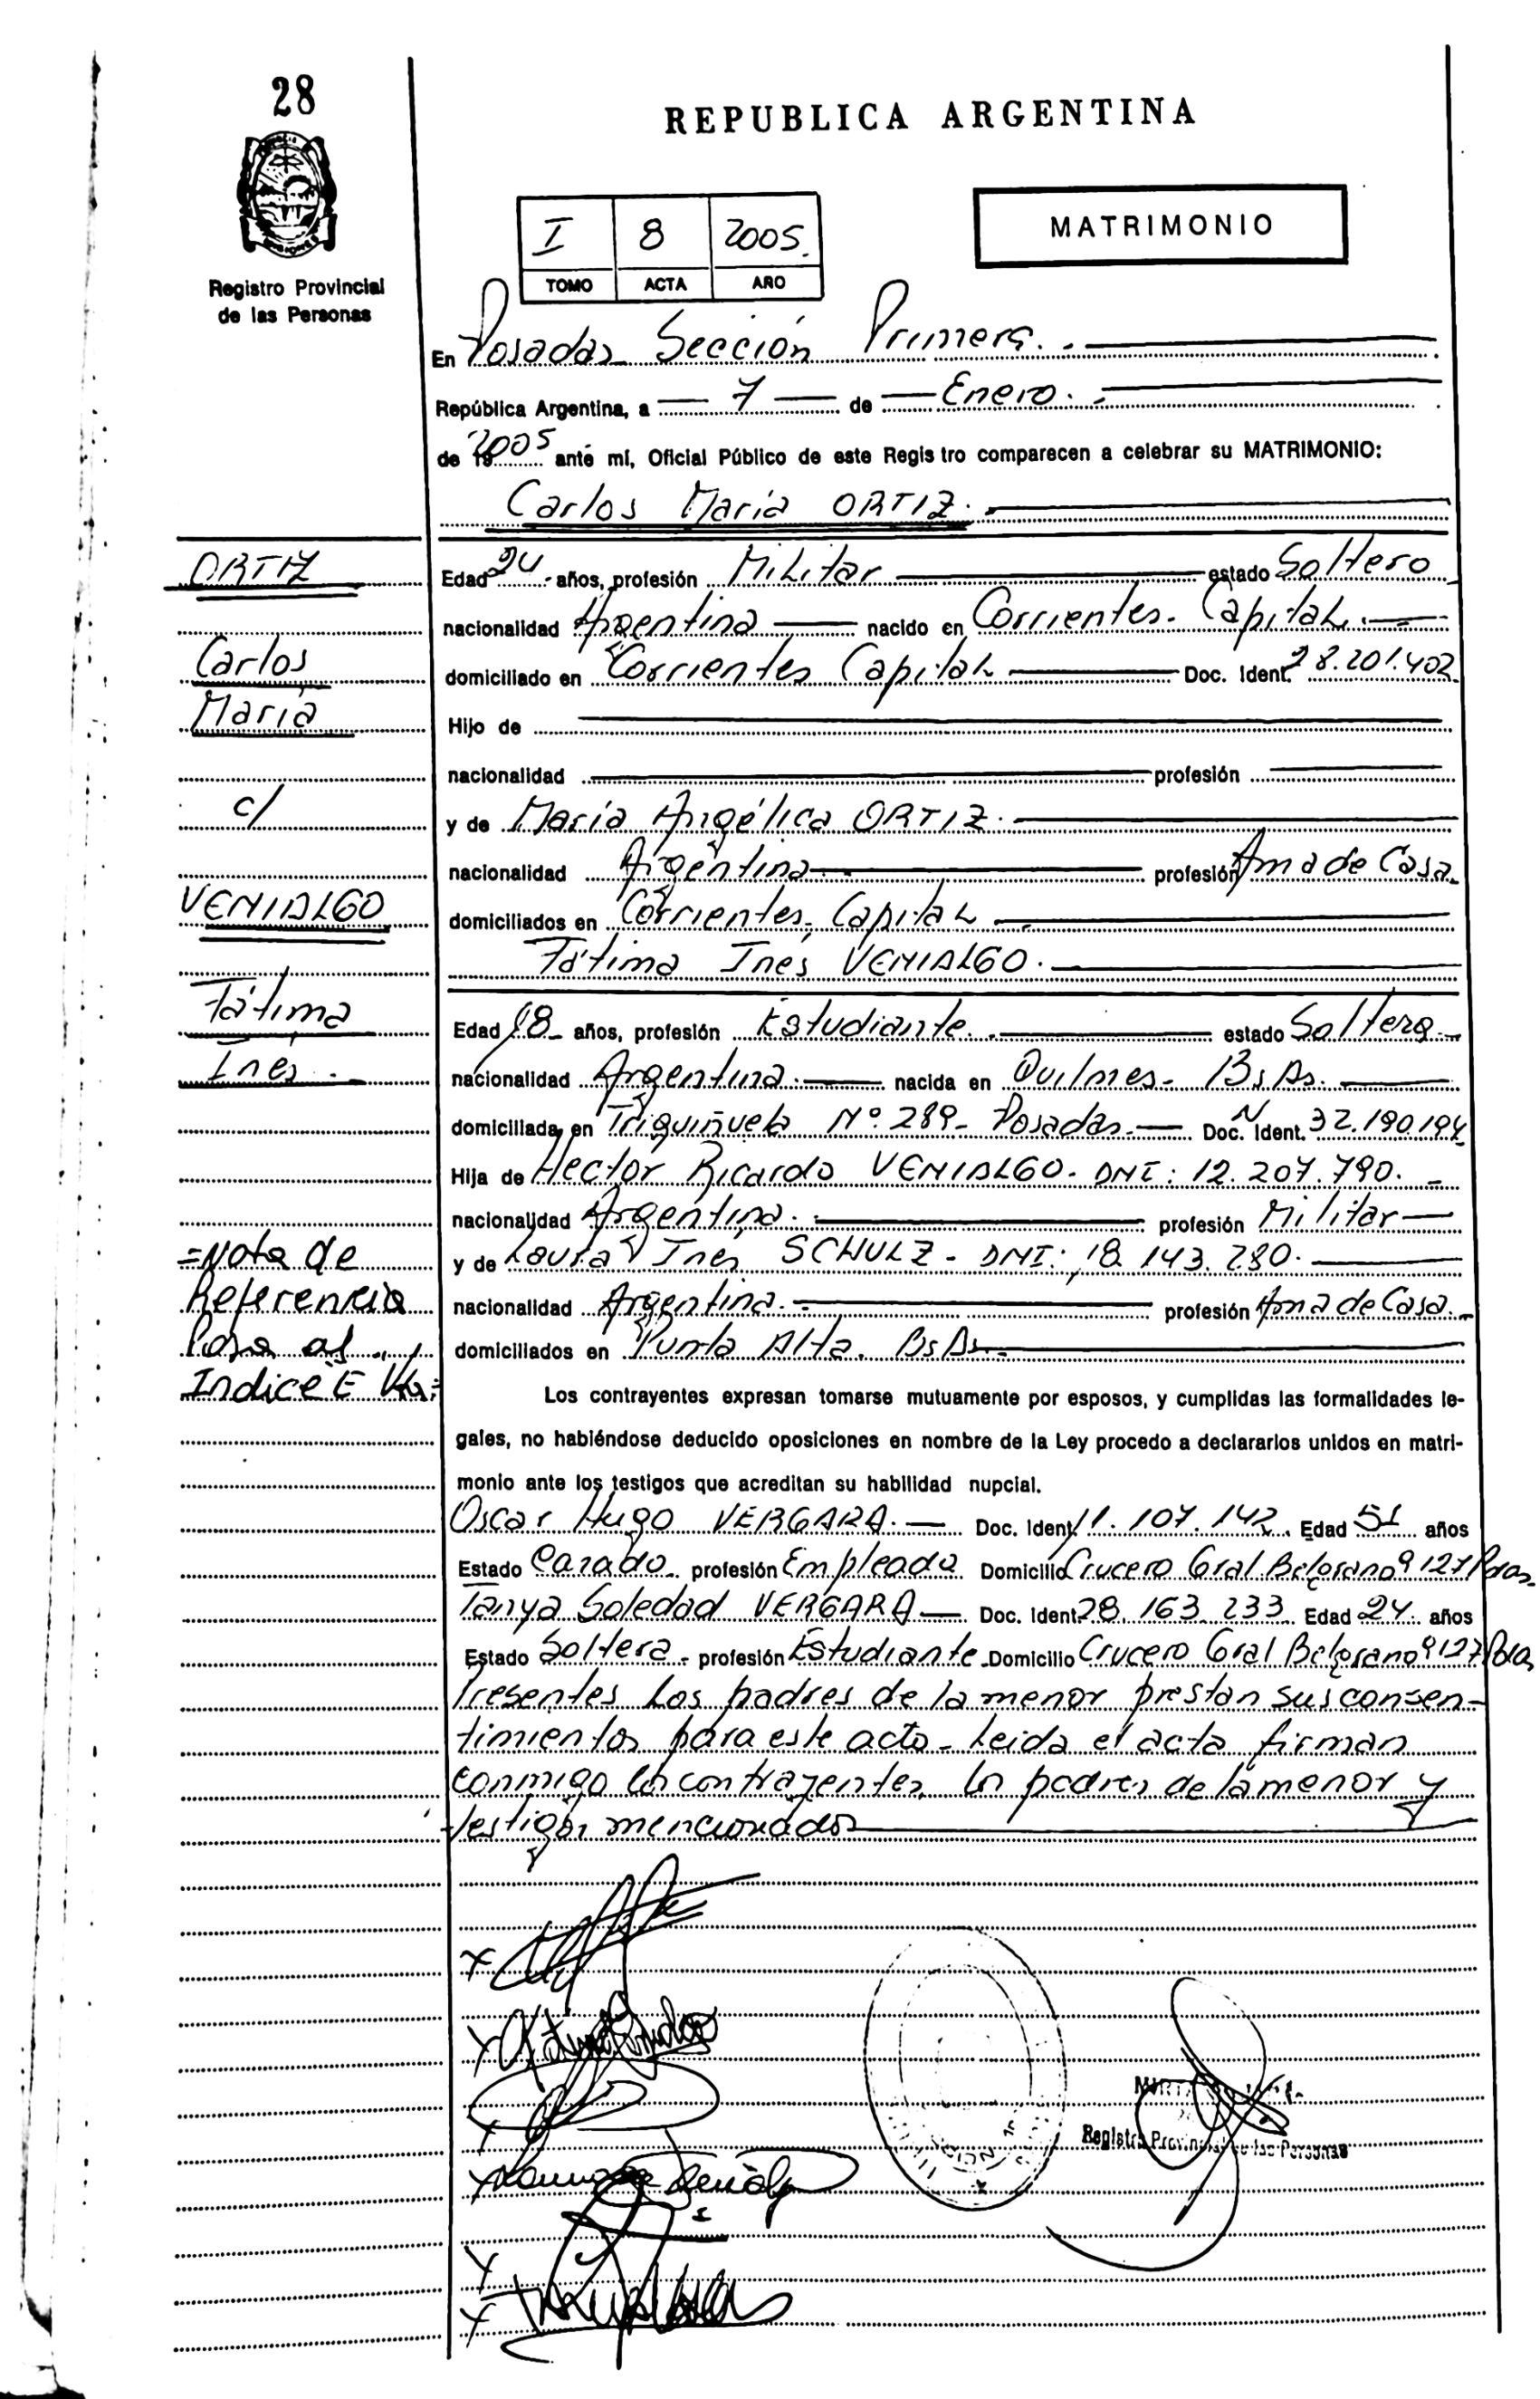 28
REPUBLICA ARGENTINA
Registro Provincial
de las Personas
I 8 2005.
TOMO ACTA AÑO
MATRIMONIO
En Posadas Sección Primera.
República Argentina, a 7 de Enero.
de 2005 ante mí, Oficial Público de este Regis tro comparecen a celebrar su MATRIMONIO:
Carlos María ORTIZ.
ORTIZ
Carlos
María
c/
VENIALGO
Fátima
Inés
=Nota de
Referencia
Pasa al
Indice E
Edad 24 años, profesión Militar estado Soltero
nacionalidad Argentina nacido en Corrientes- Capital.
domiciliado en Corrientes Capital Doc. Ident. 28.201.402
Hijo de
nacionalidad profesión
y de María Angélica ORTIZ.
nacionalidad Argentina profesión Ama de Casa.
domiciliados en Corrientes, Capital
Fátima Inés VENIALGO.
Edad 18 años, profesión Estudiante. estado Soltera
nacionalidad Argentina nacida en Quilmes- Bs As.
domiciliada en Triquiñuela Nº 289- Posadas. Doc. N Ident. 32.190.194
Hija de Hector Ricardo VENIALGO- DNI: 12.207.790.
nacionalidad Argentina. profesión Militar
y de Laura Inés SCHULZ- DNI: 18.143.280.
nacionalidad Argentina. profesión Ama de Casa.
domiciliados en Punta Alta. Bs As.
Los contrayentes expresan tomarse mutuamente por esposos, y cumplidas las formalidades le-
gales, no habiéndose deducido oposiciones en nombre de la Ley procedo a declararlos unidos en matri-
monio ante los testigos que acreditan su habilidad nupcial.
Oscar Hugo VERGARA. Doc. Ident. 11.107.142. Edad 51 años
Estado Casado profesión Empleado Domicilio Crucero Gral Belgrano 9127 Pdas.
Tanya Soledad VERGARA Doc. Ident. 28.163.233 Edad 24 años
Estado Soltera- profesión Estudiante Domicilio Crucero Gral Belgrano 9127 Pdas
Presentes los padres de la menor prestan sus consen-
timientos para este acto- Leida el acta firman
conmigo los contrayentes, los padres de la menor y
testigos mencionados
Registro Provincial de las Personas